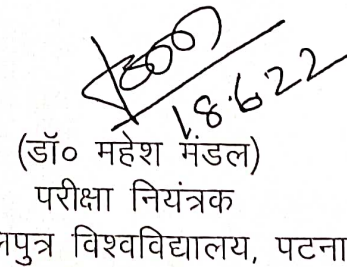 18.6.22
(डॉ० महेश मंडल)
परीक्षा नियंत्रक
विश्वविद्यालय, पटना